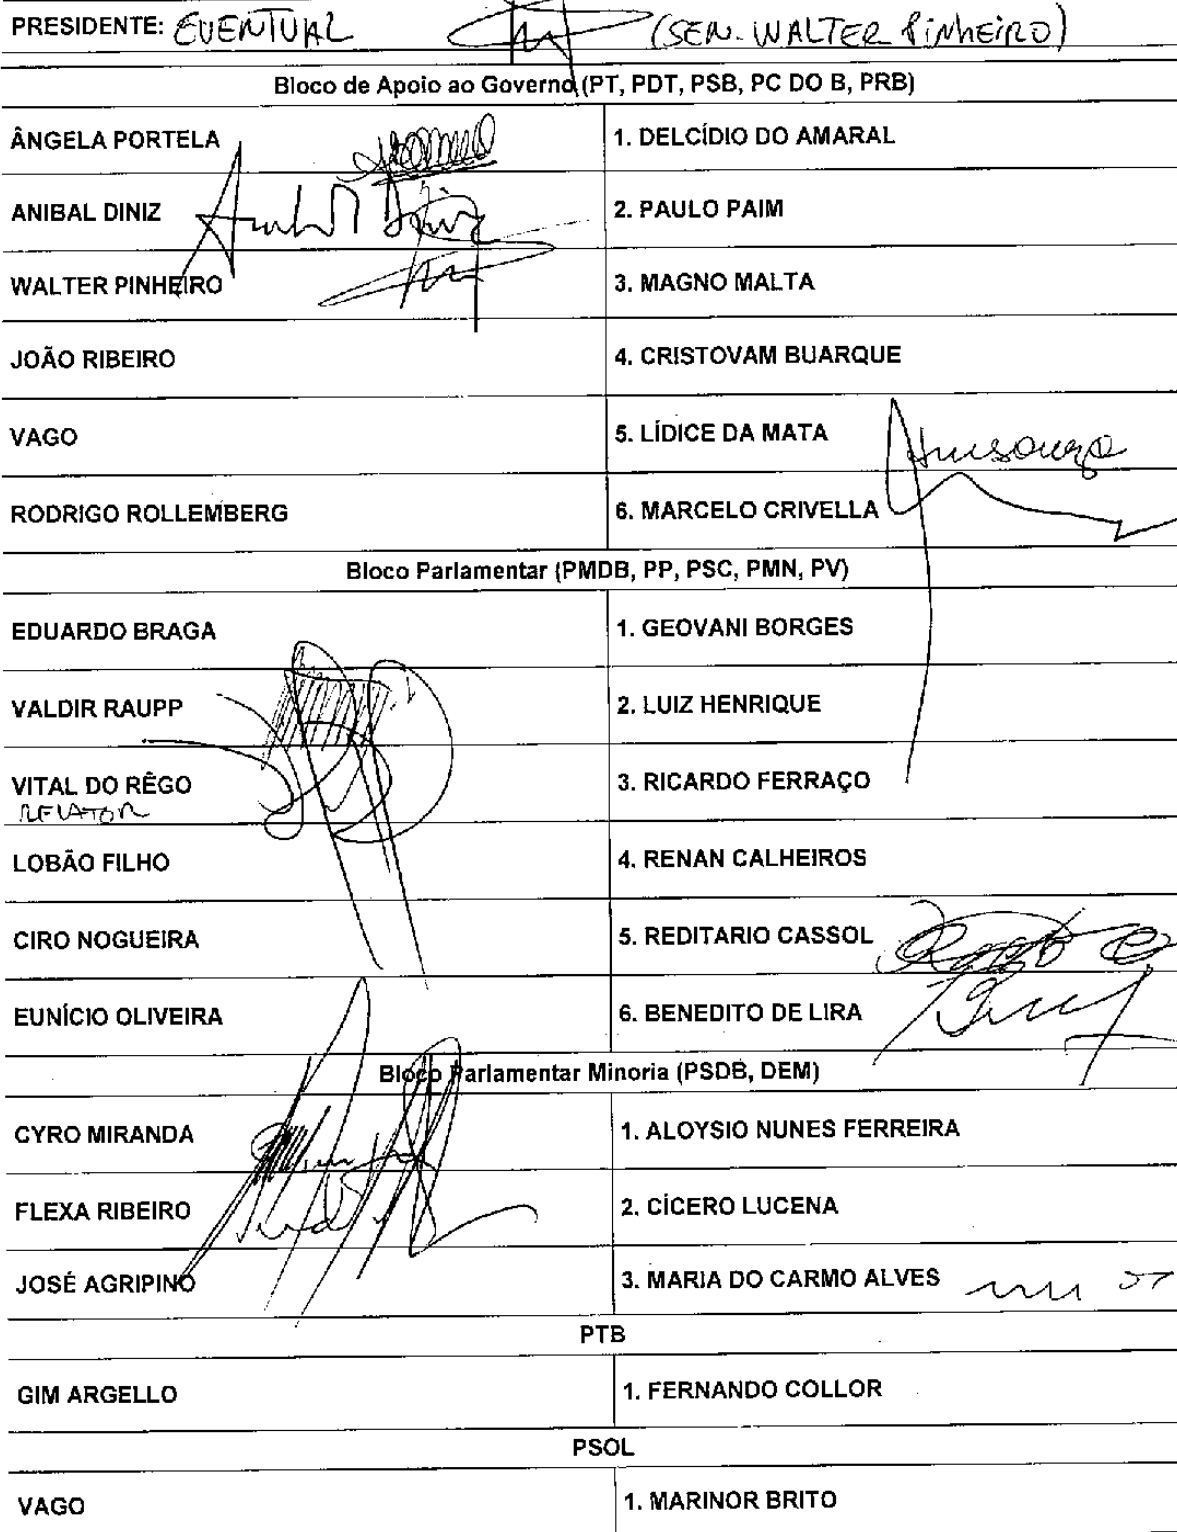 PRESIDENTE: EVENTUAL (SEN. WALTER PINHEIRO)
Bloco de Apoio ao Governo (PT, PDT, PSB, PC DO B, PRB)
ÂNGELA PORTELA 1. DELCÍDIO DO AMARAL
ANIBAL DINIZ Anibal Diniz 2. PAULO PAIM
WALTER PINHEIRO 3. MAGNO MALTA
JOÃO RIBEIRO 4. CRISTOVAM BUARQUE
VAGO 5. LÍDICE DA MATA
RODRIGO ROLLEMBERG 6. MARCELO CRIVELLA
Bloco Parlamentar (PMDB, PP, PSC, PMN, PV)
EDUARDO BRAGA 1. GEOVANI BORGES
VALDIR RAUPP 2. LUIZ HENRIQUE
VITAL DO RÊGO 3. RICARDO FERRAÇO
RELATOR
LOBÃO FILHO 4. RENAN CALHEIROS
CIRO NOGUEIRA 5. REDITARIO CASSOL
EUNÍCIO OLIVEIRA 6. BENEDITO DE LIRA
Bloco Parlamentar Minoria (PSDB, DEM)
CYRO MIRANDA 1. ALOYSIO NUNES FERREIRA
FLEXA RIBEIRO 2. CÍCERO LUCENA
JOSÉ AGRIPINO 3. MARIA DO CARMO ALVES
PTB
GIM ARGELLO 1. FERNANDO COLLOR
PSOL
VAGO 1. MARINOR BRITO